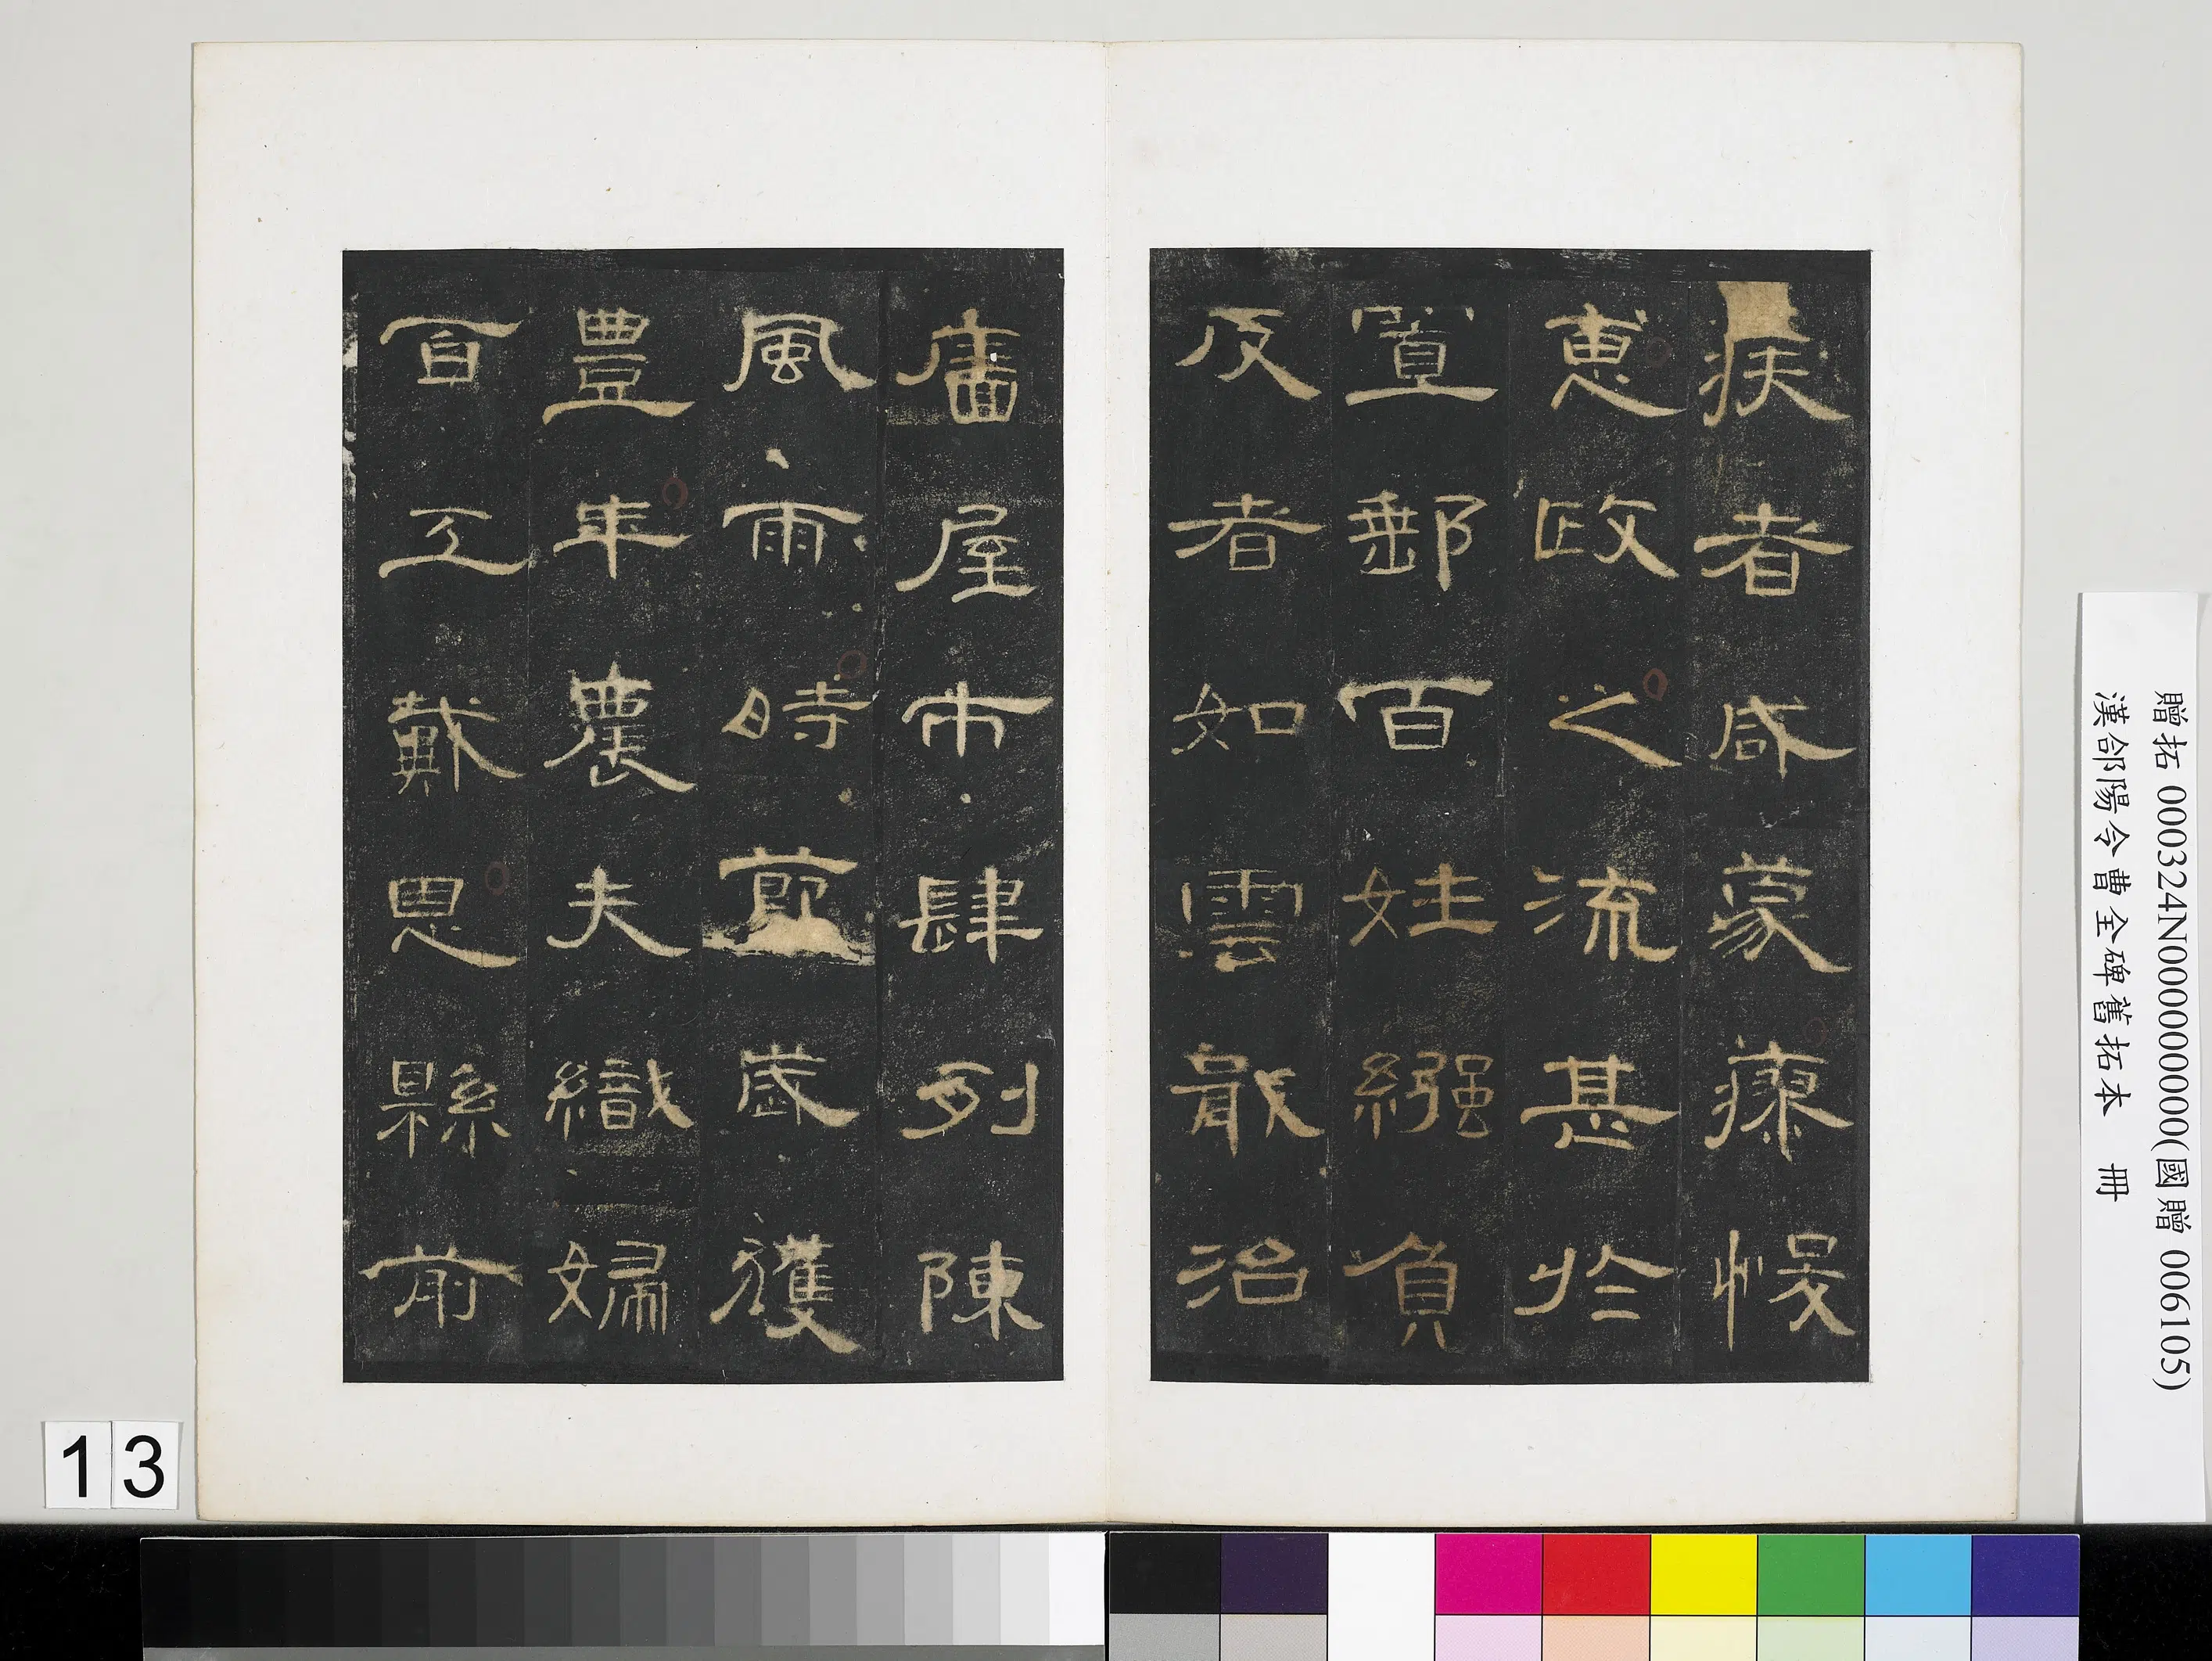 疾者咸蒙瘳悛
惠政之流甚於
置郵百姓繈負
反者如雲戢治
廧屋市肆列陳
風雨時節歲獲
豐年農夫織婦
百工戴恩縣前
贈拓 000324N000000000(國贈 006105)
漢郃陽令曹全碑舊拓本 冊
13